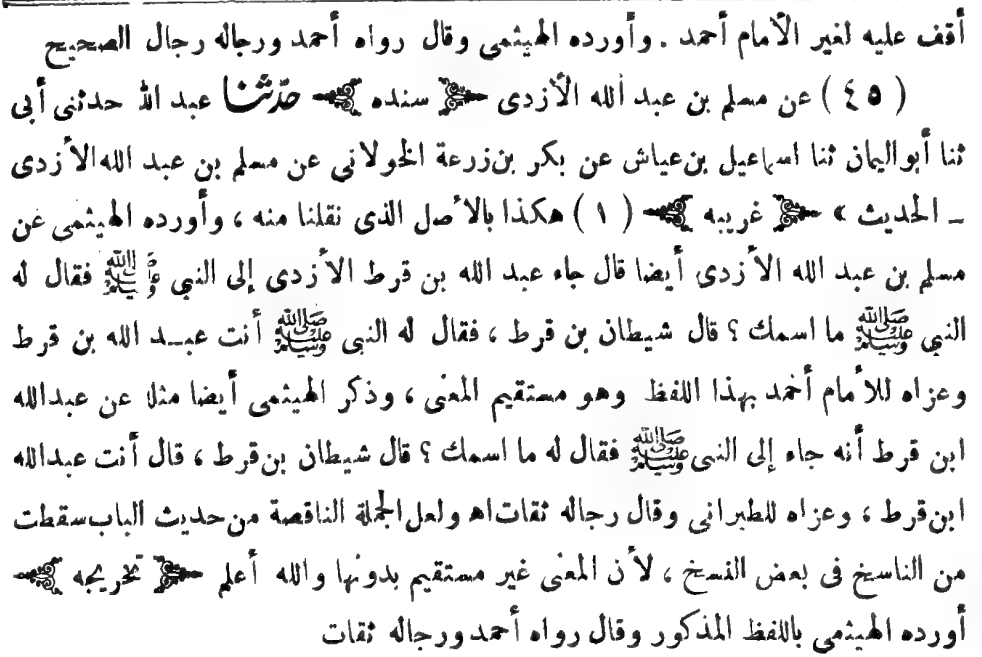 أقف عليه لغير الأمام أحمد . وأورده الهيثمى وقال رواه أحمد ورجاله رجال الصحيح
( ٤٥ ) عن مسلم بن عبد الله الأزدى ﴿ سنده ﴾ حدّثنا عبد الله حدثنى أبى
ثنا أبو اليمان ثنا اسماعيل بن عياش عن بكر بن زرعة الخولانى عن مسلم بن عبد الله الأزدى
ــ الحديث » ﴿ غريبه ﴾ ( ١ ) هكذا بالأصل الذى نقلنا منه ، وأورده الهيثمى عن
مسلم بن عبد الله الأزدى أيضا قال جاء عبد الله بن قرط الأزدى إلى النبى ﷺ فقال له
النبى ﷺ ما اسمك ؟ قال شيطان بن قرط ، فقال له النبى ﷺ أنت عبــد الله بن قرط
وعزاه للأمام أحمد بهذا اللفظ وهو مستقيم المعنى ، وذكر الهيثمى أيضا مثله عن عبدالله
ابن قرط أنه جاء إلى النبى ﷺ فقال له ما اسمك ؟ قال شيطان بن قرط ، قال أنت عبدالله
ابن قرط ، وعزاه للطبرانى وقال رجاله ثقات اهـ ولعل الجملة الناقصة من حديث الباب سقطت
من الناسخ فى بعض النسخ ، لأن المعنى غير مستقيم بدونها والله أعلم ﴿ تخريجه ﴾
أورده الهيثمى باللفظ المذكور وقال رواه أحمد ورجاله ثقات